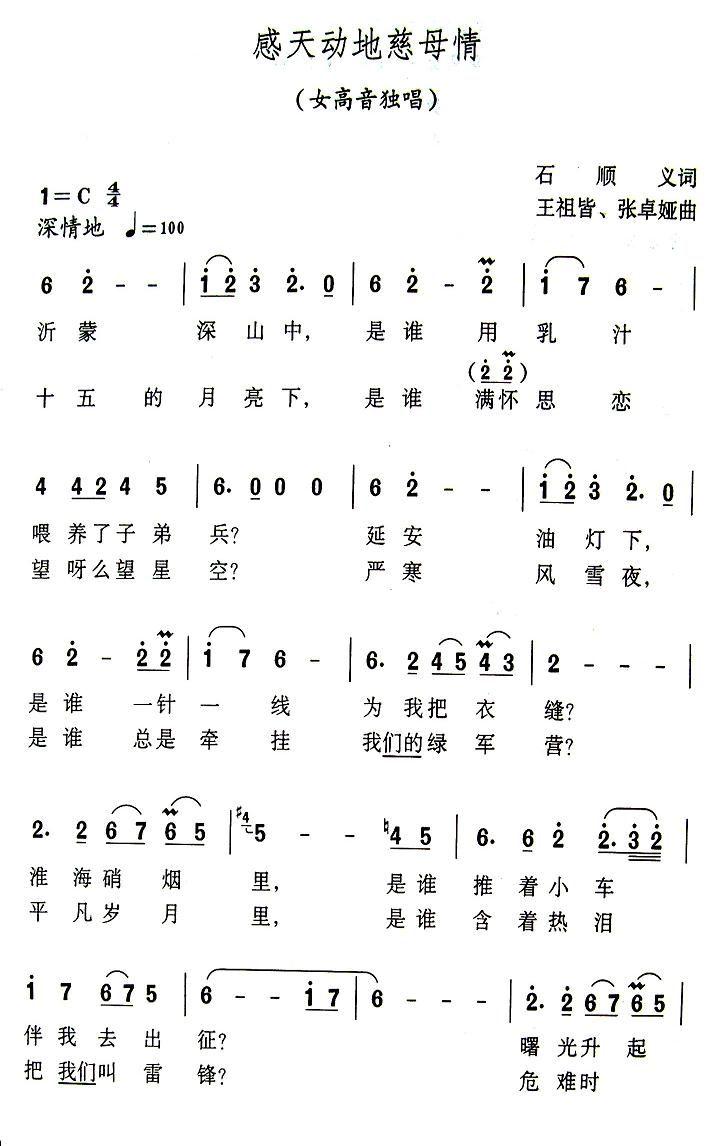 感天动地慈母情
（女高音独唱）
石顺义词
1=C 4/4
王祖皆、张卓娅曲
深情地 ♩=100
6 2̇ - - | 1̇ 2̇ 3̇ 2̇. 0 | 6 2̇ - 2̇ | 1̇ 7 6 - |
沂蒙 深山中， 是谁 用乳汁
(2̇ 2̇)
十五的月亮下， 是谁 满怀思恋
4 4 2 4 5 | 6. 0 0 0 | 6 2̇ - - | 1̇ 2̇ 3̇ 2̇. 0 |
喂养了子弟兵？ 延安 油灯下，
望呀么望星空？ 严寒 风雪夜，
6 2̇ - 2̇ 2̇ | 1̇ 7 6 - | 6. 2 4 5 4 3 | 2 - - - |
是谁 一针一线 为我把衣缝？
是谁 总是牵挂 我们的绿军营？
2. 2 6 7 6 5 | ♯4 5 - - ♮4 5 | 6. 6 2̇ 2̇. 3̇ 2̇ |
淮海硝烟里， 是谁推着小车
平凡岁月里， 是谁含着热泪
1̇ 7 6 7 5 | 6 - - 1̇ 7 | 6 - - - | 2̇. 2̇ 6 7 6 5 |
伴我去出征？ 曙光升起
把我们叫雷锋？ 危难时